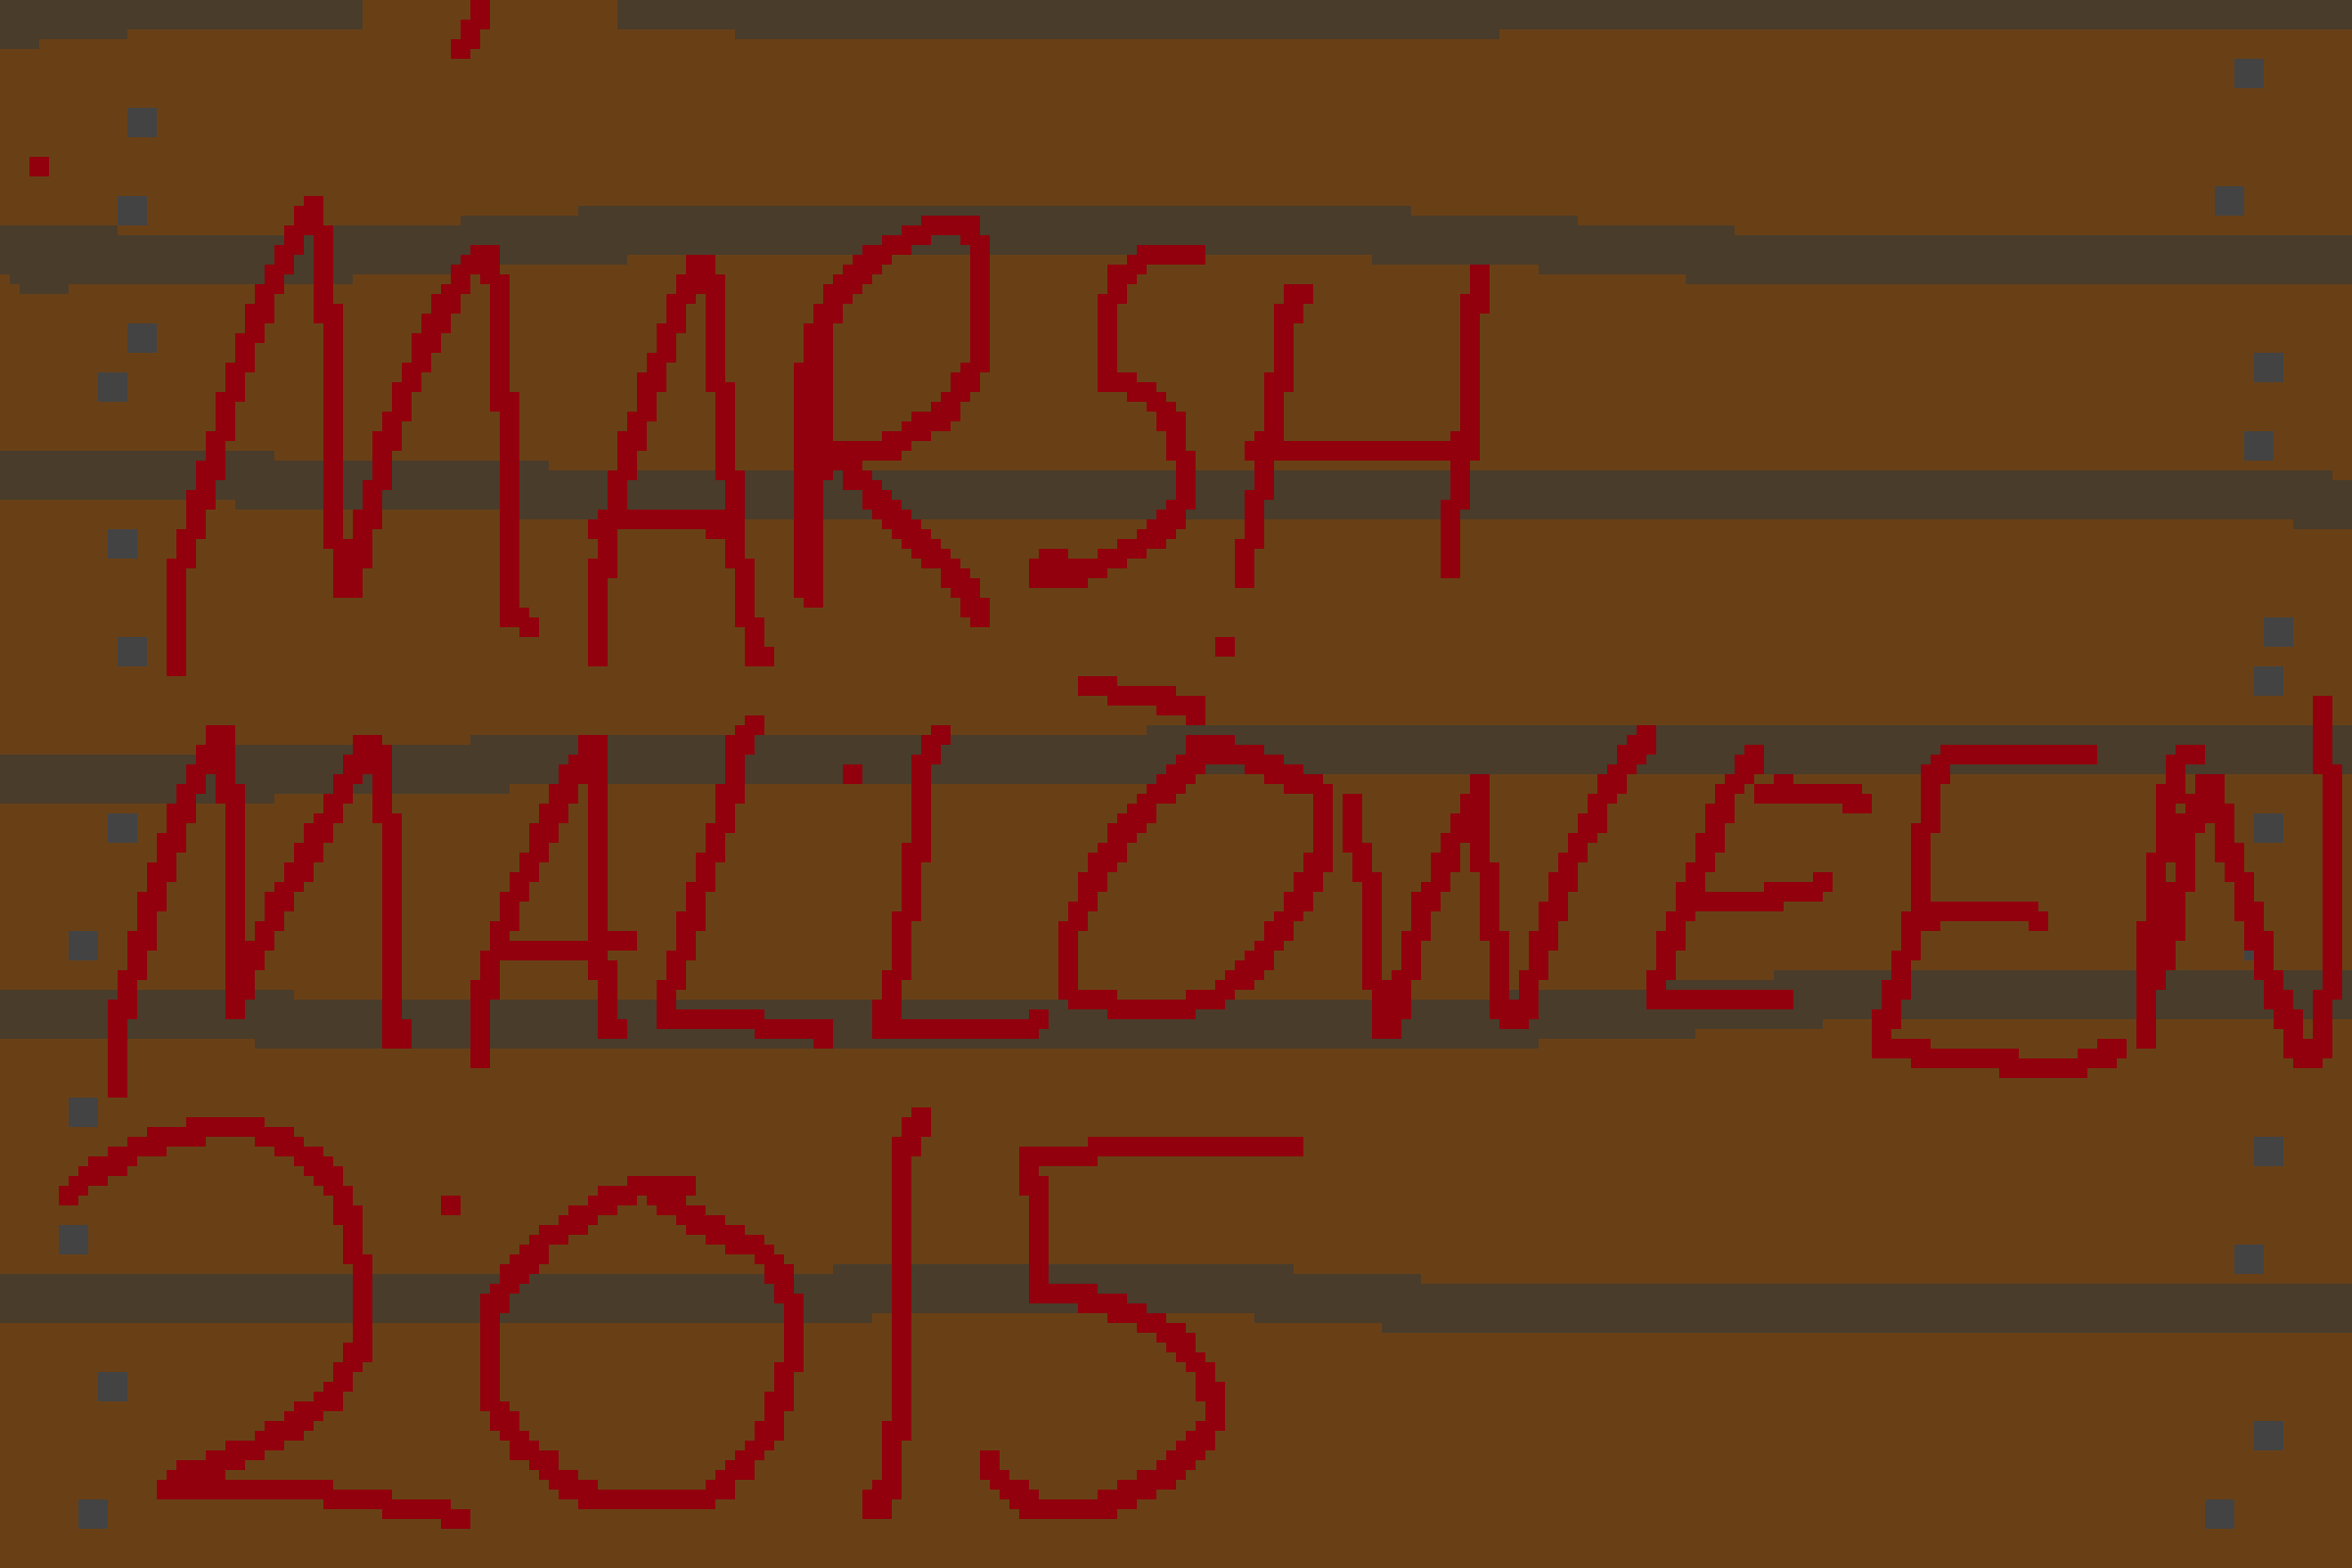 MARSH
MALLOWEEN
2015